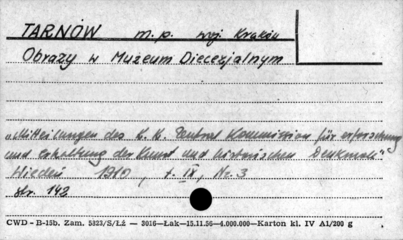 TARNÓW m.p. woj. Kraków
Obrazy w Muzeum Diecezjalnym
„Mitteilungen des K. K. Zentral Kommission für erforschung
und erhaltung der Kunst und historischen Denkmale"
Wiedeń 1910, t. IX, Nr. 3
str. 142
CWD - B-15b. Zam. 5323/S/Łż — 3016—Łak—15.11.56—4.000.000—Karton kl. IV A1/200 g